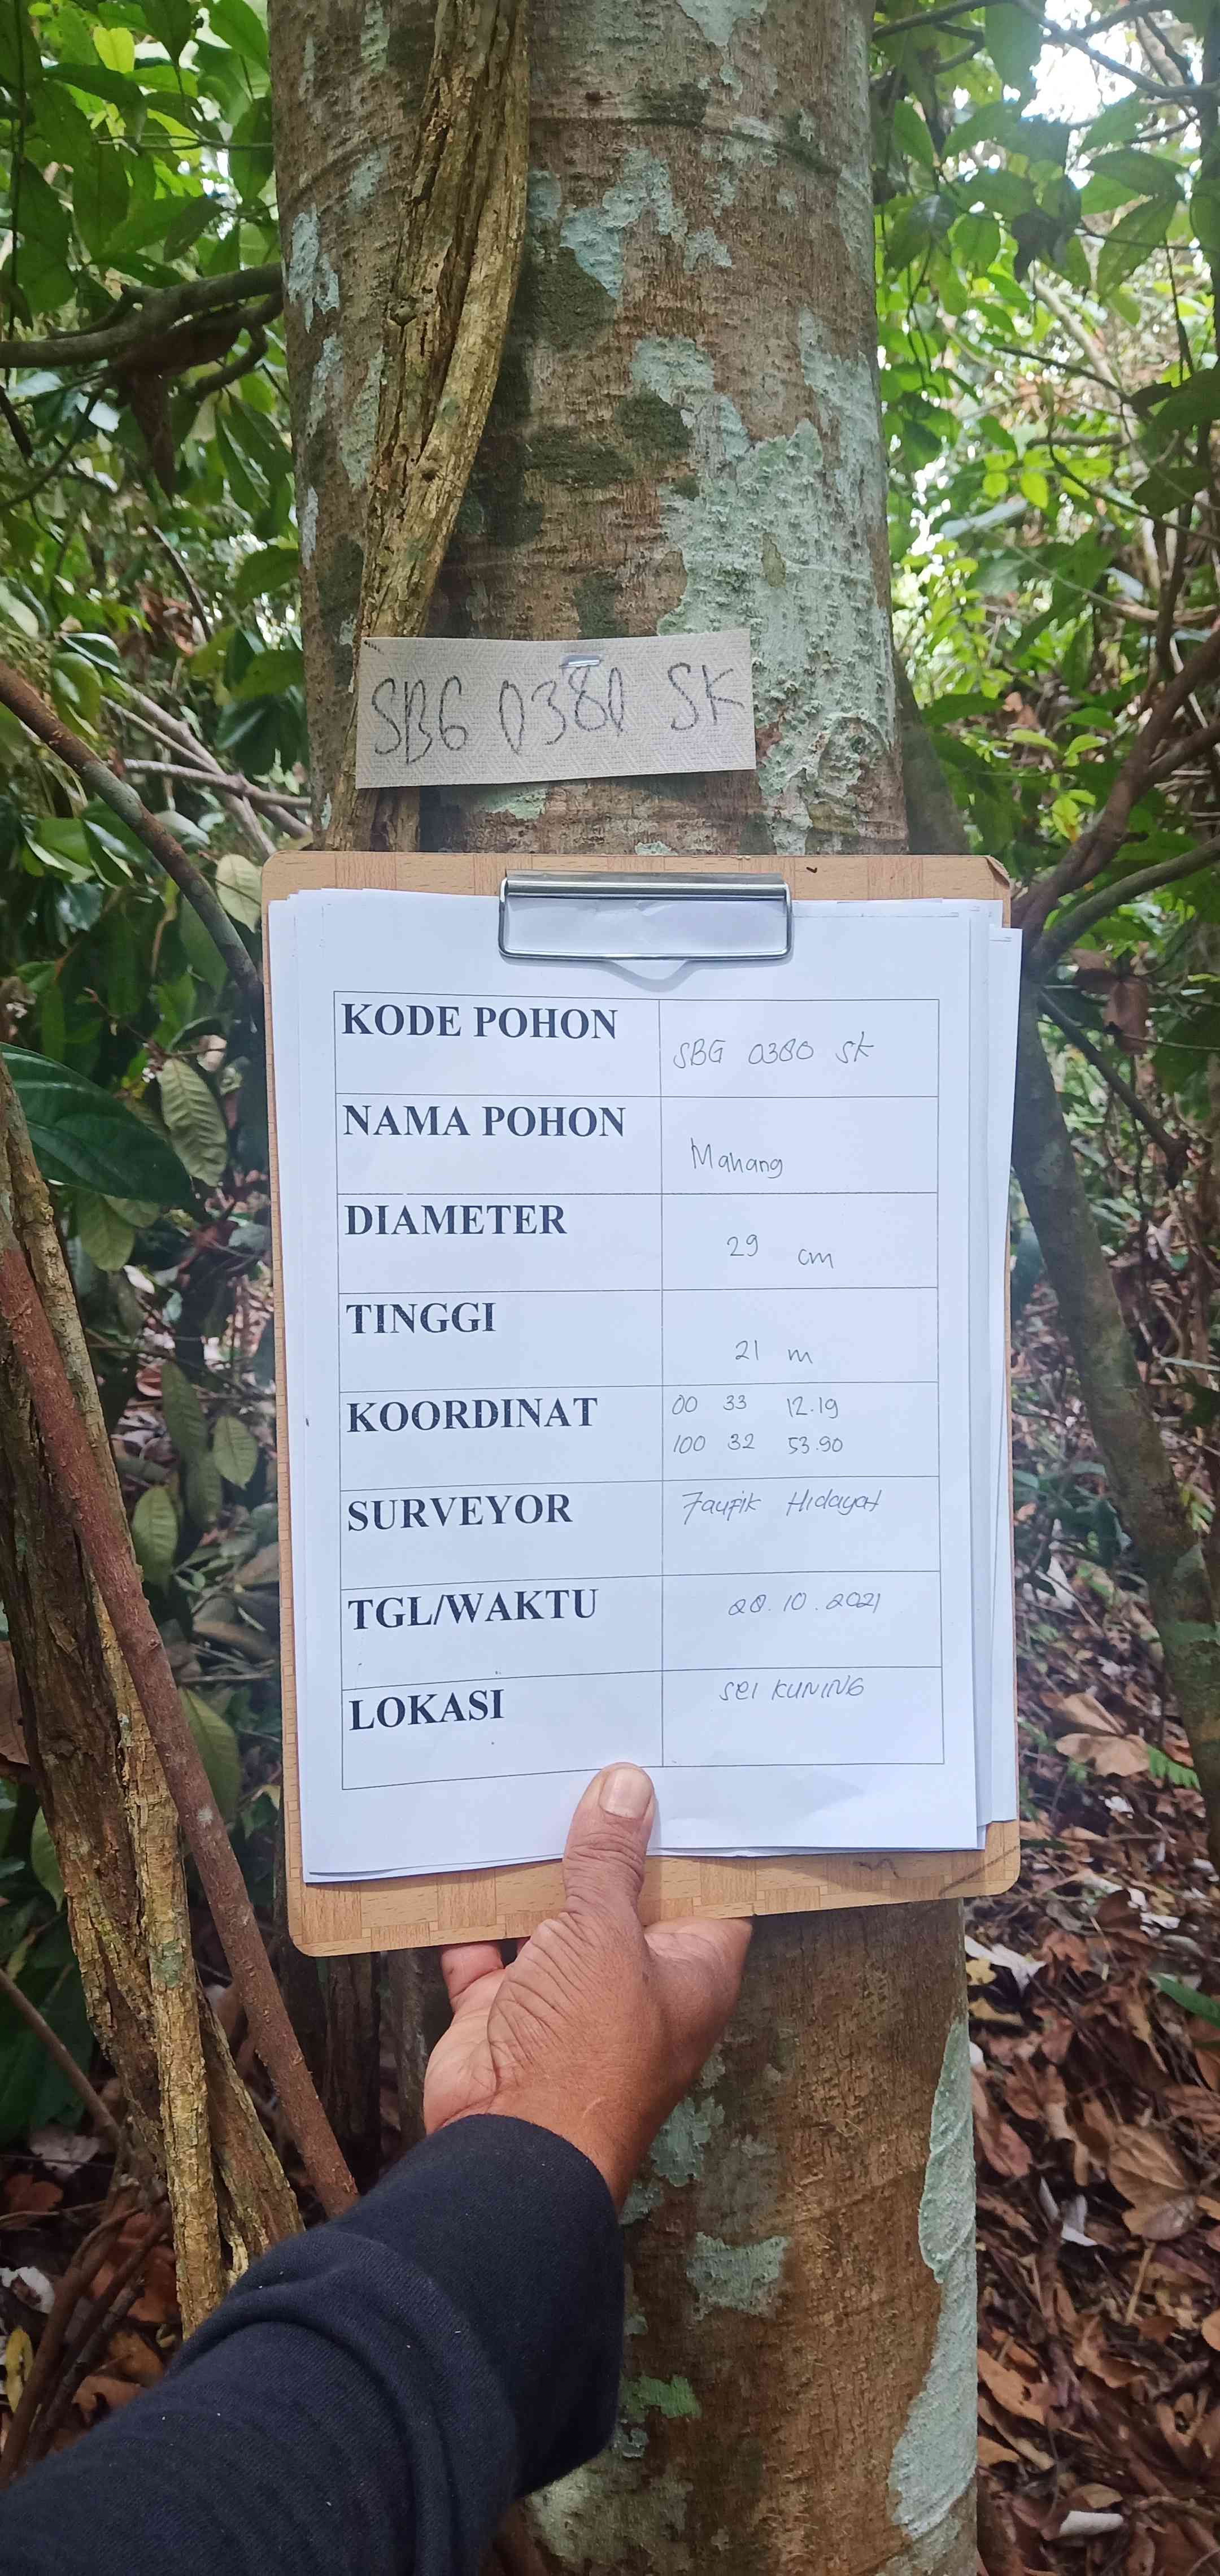 SBG 0380 SK
KODE POHON
SBG 0380 SK
NAMA POHON
Mahang
DIAMETER
29 cm
TINGGI
21 m
KOORDINAT
00 33 12.19
100 32 53.90
SURVEYOR
Taufik Hidayat
TGL/WAKTU
28.10.2021
LOKASI
SEI KUNING